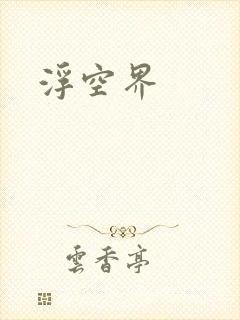 浮空界
雲香亭